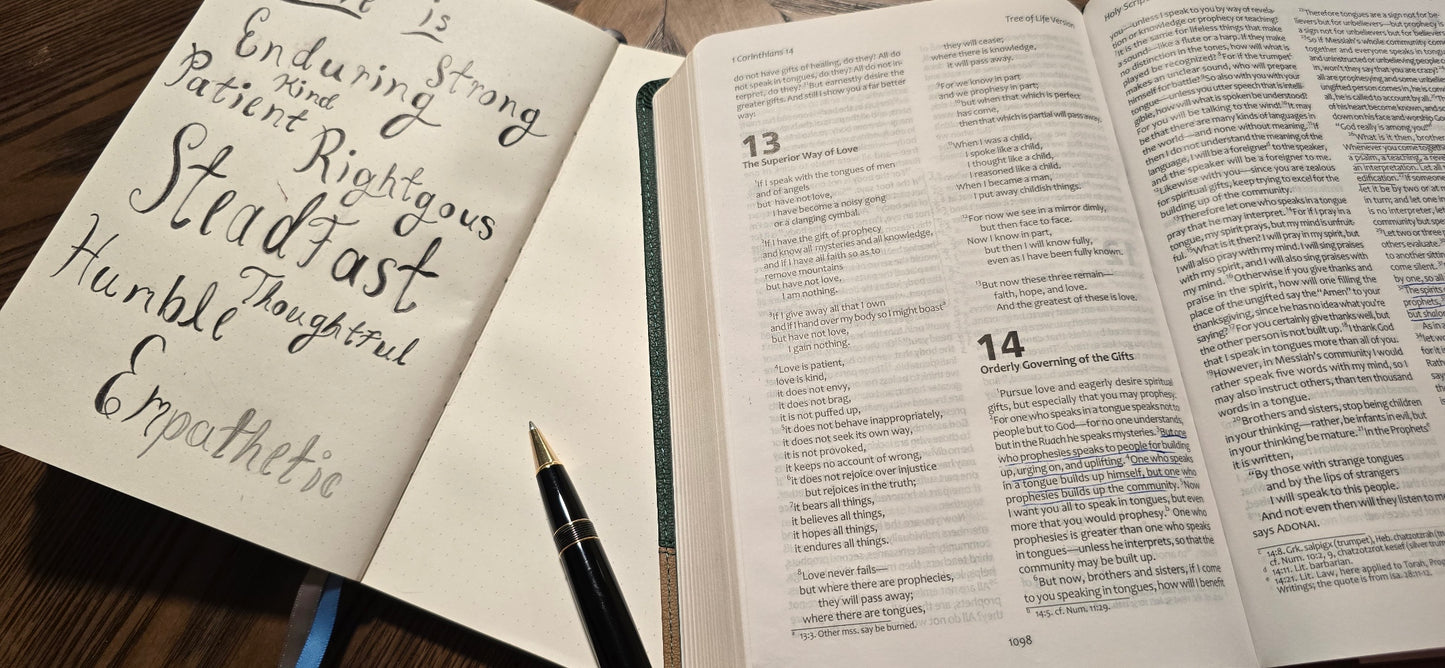 is
Enduring
Strong
Kind
Patient
Rightgous
SteadFast
Humble
Thoughtful
Empathetic
1 Corinthians 14
do not have gifts of healing, do they? All do
not speak in tongues, do they? All do not in-
terpret, do they? ³¹But earnestly desire the
greater gifts. And still I show you a far better
way:
13
The Superior Way of Love
¹If I speak with the tongues of men
and of angels
but have not love,
I have become a noisy gong
or a clanging cymbal.
²If I have the gift of prophecy
and know all mysteries and all knowledge,
and if I have all faith so as to
remove mountains
but have not love,
I am nothing.
³If I give away all that I own
and if I hand over my body so I might boastᵃ
but have not love,
I gain nothing.
⁴Love is patient,
love is kind,
it does not envy,
it does not brag,
it is not puffed up,
⁵it does not behave inappropriately,
it does not seek its own way,
it is not provoked,
it keeps no account of wrong,
⁶it does not rejoice over injustice
but rejoices in the truth;
⁷it bears all things,
it believes all things,
it hopes all things,
it endures all things.
⁸Love never fails—
but where there are prophecies,
they will pass away;
where there are tongues,
ᵃ 13:3. Other mss. say be burned.
Tree of Life Version
they will cease;
where there is knowledge,
it will pass away.
⁹For we know in part
and we prophesy in part;
¹⁰but when that which is perfect
has come,
then that which is partial will pass away.
¹¹When I was a child,
I spoke like a child,
I thought like a child,
I reasoned like a child.
When I became a man,
I put away childish things.
¹²For now we see in a mirror dimly,
but then face to face.
Now I know in part,
but then I will know fully,
even as I have been fully known.
¹³But now these three remain—
faith, hope, and love.
And the greatest of these is love.
14
Orderly Governing of the Gifts
¹Pursue love and eagerly desire spiritual
gifts, but especially that you may prophesy.
²For one who speaks in a tongue speaks not to
people but to God—for no one understands,
but in the Ruach he speaks mysteries. ³But one
who prophesies speaks to people for building
up, urging on, and uplifting. ⁴One who speaks
in a tongue builds up himself, but one who
prophesies builds up the community. ⁵Now
I want you all to speak in tongues, but even
more that you would prophesy.ᵇ One who
prophesies is greater than one who speaks
in tongues—unless he interprets, so that the
community may be built up.
⁶But now, brothers and sisters, if I come
to you speaking in tongues, how will I benefit
ᵇ 14:5. cf. Num. 11:29.
1098
Holy Scrip
you—unless I speak to you by way of revela-
tion or knowledge or prophecy or teaching?
⁷It is the same for lifeless things that make
a sound—like a flute or a harp. If they make
no distinction in the tones, how will what is
played be recognized? ⁸For if the trumpetᶜ
makes an unclear sound, who will prepare
himself for battle? ⁹So also with you with your
tongue—unless you utter speech that is intelli-
gible, how will what is spoken be understood?
For you will be talking to the wind. ¹⁰It may
be that there are many kinds of languages in
the world—and none without meaning. ¹¹If
then I do not understand the meaning of the
language, I will be a foreignerᵈ to the speaker,
and the speaker will be a foreigner to me.
¹²Likewise with you—since you are zealous
for spiritual gifts, keep trying to excel for the
building up of the community.
¹³Therefore let one who speaks in a tongue
pray that he may interpret. ¹⁴For if I pray in a
tongue, my spirit prays, but my mind is unfruit-
ful. ¹⁵What is it then? I will pray in my spirit, but
I will also pray with my mind. I will sing praises
with my spirit, and I will also sing praises with
my mind. ¹⁶Otherwise if you give thanks and
praise in the spirit, how will one filling the
place of the ungifted say the "Amen" to your
thanksgiving, since he has no idea what you're
saying? ¹⁷For you certainly give thanks well, but
the other person is not built up. ¹⁸I thank God
that I speak in tongues more than all of you.
¹⁹However, in Messiah's community I would
rather speak five words with my mind, so I
may also instruct others, than ten thousand
words in a tongue.
²⁰Brothers and sisters, stop being children
in your thinking—rather, be infants in evil, but
in your thinking be mature. ²¹In the Prophetsᵉ
it is written,
"By those with strange tongues
and by the lips of strangers
I will speak to this people.
And not even then will they listen to m
says ADONAI.
ᶜ 14:8. Grk. salpigx (trumpet), Heb. chatzotzrah (tr
cf. Num. 10:2, 9, chatzotzrot kesef (silver trum
ᵈ 14:11. Lit. barbarian.
ᵉ 14:21. Lit. Law, here applied to Torah, Prop
Writings; the quote is from Isa. 28:11-12.
²²Therefore tongues are a sign not for be-
lievers but for unbelievers—but prophecy is
a sign not for unbelievers but for believers
²³So if Messiah's whole community com
together and everyone speaks in tongu
and uninstructed or unbelieving people c
in, won't they say that you are crazy?
all are prophesying and some unbelie
ungifted person comes in, he is con
all, he is called to account by all.
of his heart become known, and so
down on his face and worship Go
"God really is among you!"
²⁶What is it then, brothe
Whenever you come togeth
a psalm, a teaching, a reve
an interpretation. Let all
edification. ²⁷If someon
let it be by two or at
in turn; and let one in
is no interpreter, let
community but spe
²⁹Let two or three
others evaluate.
to another sittin
come silent.
by one, so all
The spirits
prophets,
but shalo
As in a
let wo
for it
Rath
say
it